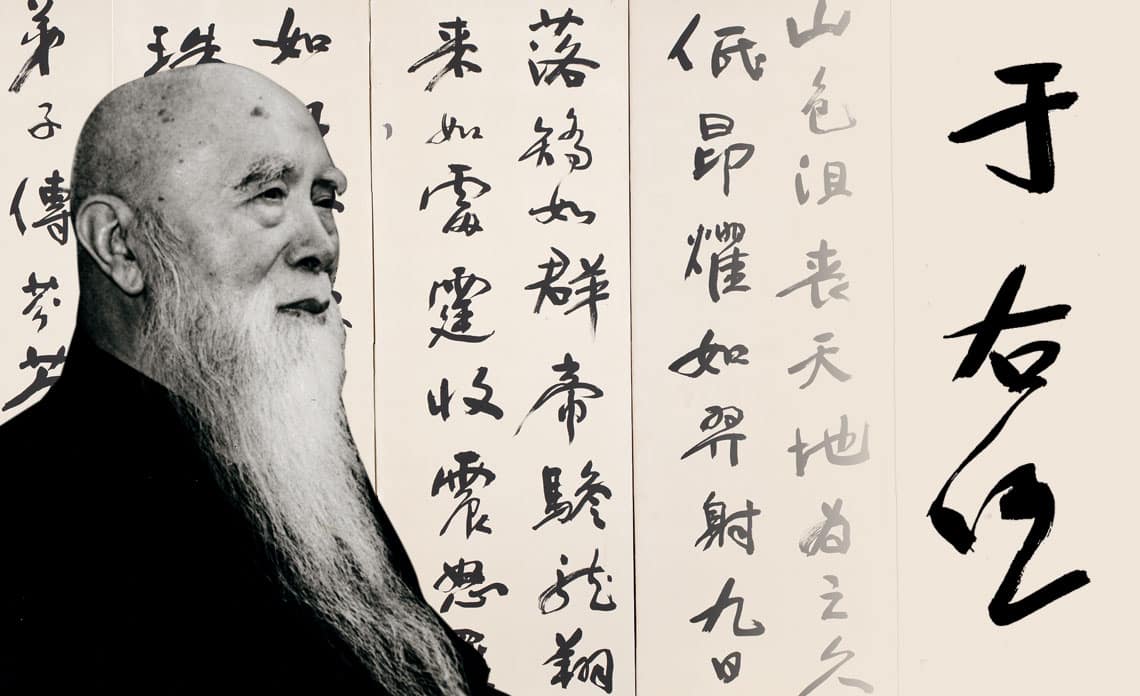 于右任
山色沮喪天地為之久
低昂燿如羿射九日
落矯如群帝驂龍翔
来如雷霆收震怒
如
弟子傳芬